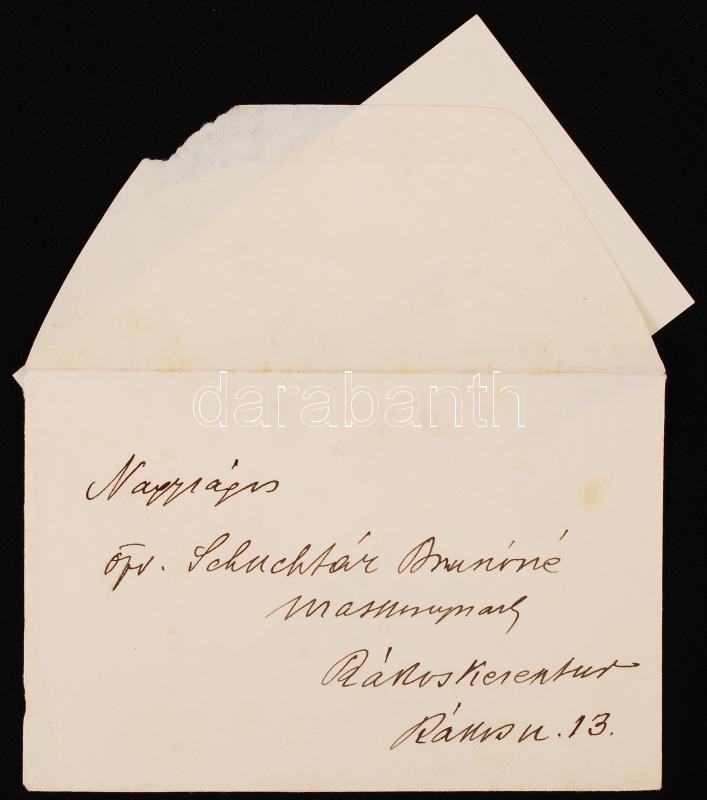 darabanth
Nagyságos
özv. Schuchtár Brunóné
úrasszonynak
Rákoskeresztur
Rákos u. 13.